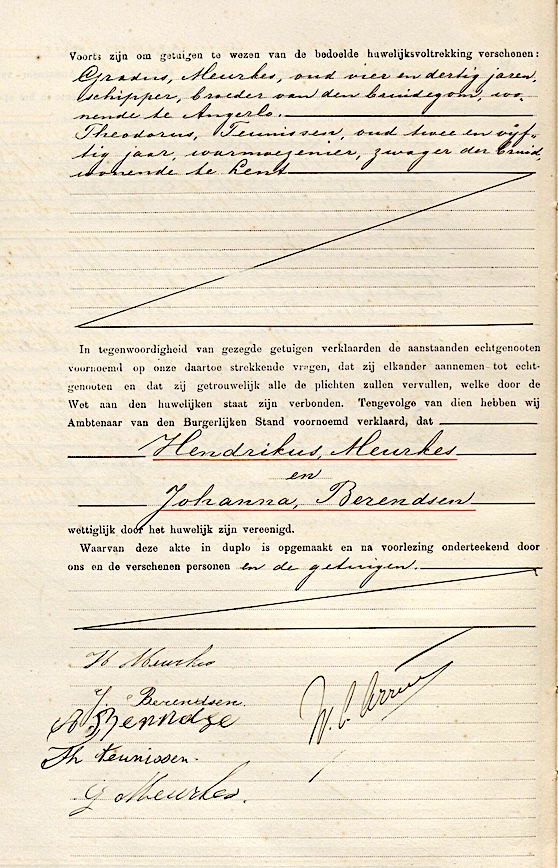 Voorts zijn om getuigen te wezen van de bedoelde huwelijksvoltrekking verschenen:
Gradus, Meurkes, oud vier en dertig jaren,
schipper, broeder van den bruidegom, wo-
nende te Angerlo.
Theodorus, Teunissen, oud twee en vijf-
tig jaar, warmoezenier, zwager der bruid,
wonende te Lent
In tegenwoordigheid van gezegde getuigen verklaarden de aanstaanden echtgenooten
voornoemd op onze daartoe strekkende vragen, dat zij elkander aannemen tot echt-
genooten en dat zij getrouwelijk alle de plichten zullen vervullen, welke door de
Wet aan den huwelijken staat zijn verbonden. Tengevolge van dien hebben wij
Ambtenaar van den Burgerlijken Stand voornoemd verklaard, dat
Hendrikus, Meurkes
en
Johanna, Berendsen
wettiglijk door het huwelijk zijn vereenigd.
Waarvan deze akte in duplo is opgemaakt en na voorlezing onderteekend door
ons en de verschenen personen en de getuigen.
H Meurkes
J. Berendsen.
Th teunissen.
G Meurkes.